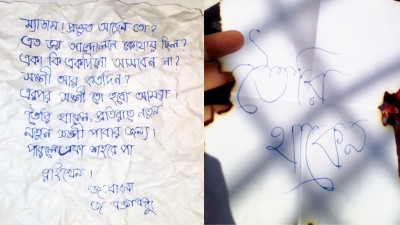 ম্যাডাম। প্রস্তুত আছেন তো?
এত ভয় আন্দোলনে কোথায় ছিল?
একা কি একদিনও আসবেন না?
সঙ্গী আর কতদিন?
এরপর সঙ্গী তো হবো আমরা।
তৈরি থাকেন, প্রতিরাতে নতুন
নতুন সঙ্গী পাবার জন্য।
পারলে একা শহরে পা
রাইখেন।
জয় বাংলা
জয় বঙ্গবন্ধু
তৈরি
থাকেন